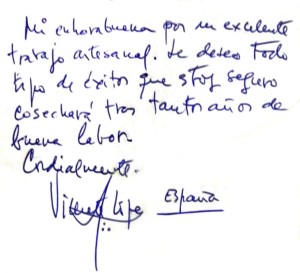 Mi enhorabuena por su excelente
trabajo artesanal. Le deseo todo
tipo de éxitos que estoy seguro
cosechará tras tantos años de
buena labor
Cordialmente.
España